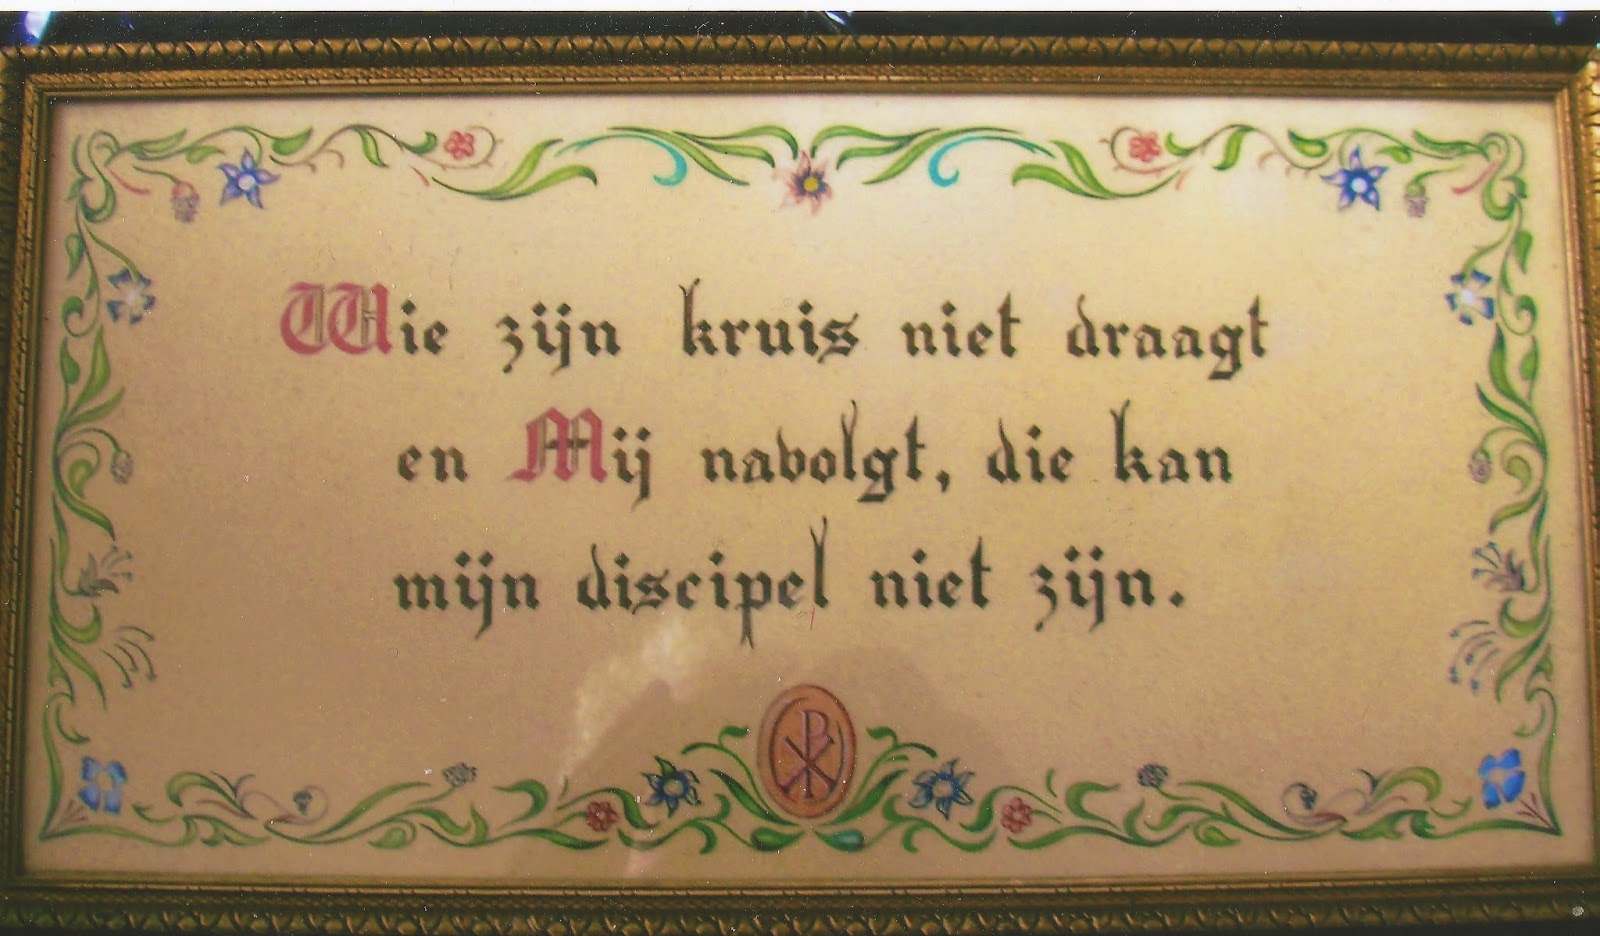 Wie zijn kruis niet draagt
en Mij navolgt, die kan
mijn discipel niet zijn.